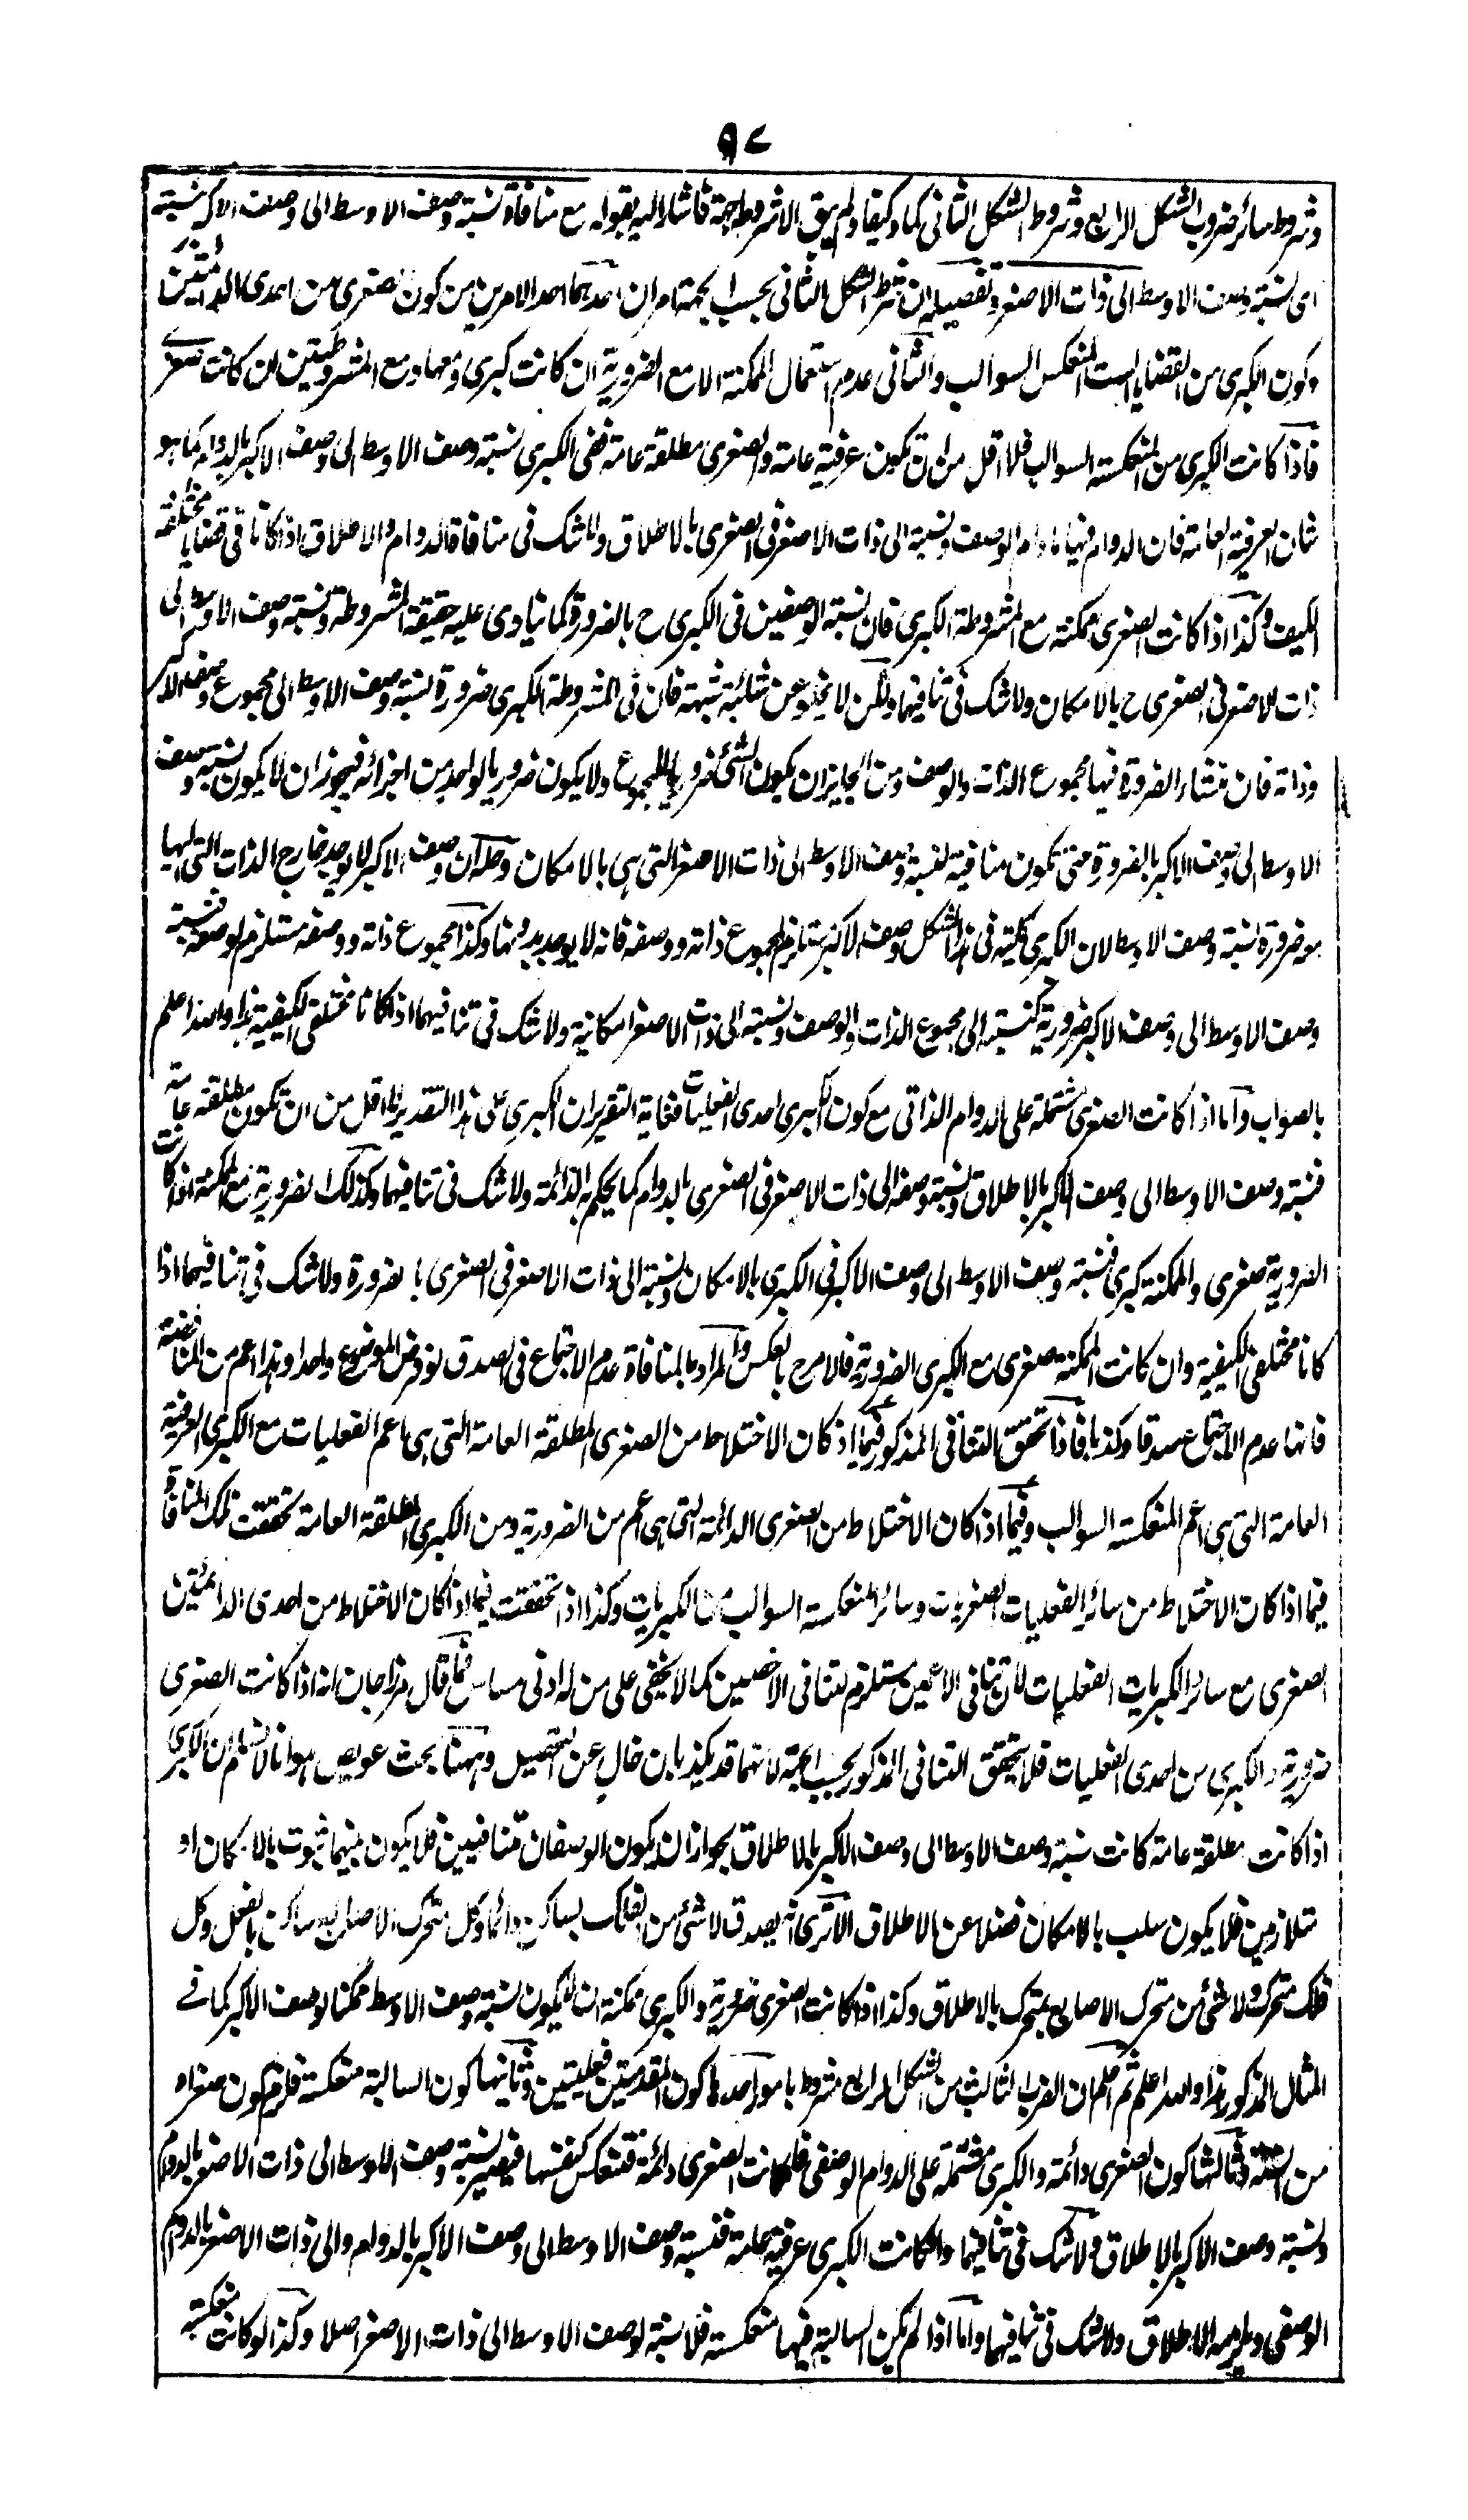 ٩٢
وشروط سائر ضروب الشكل الرابع وشروط الشكل الثاني كما وكيفا ولم يبق الا شروط الجهة فاشار اليه بقوله مع منافاة نسبة وصف الاوسط الى وصف الاكبر لنسبته
اى لنسبة وصف الاوسط الى ذات الاصغر وتفصيله ان شرط الشكل الثاني بحسب الجهة امران احدهما احد الامرين من كون الصغرى من احدى الدائمتين
وكون الكبرى من القضايا الست المنعكس السوالب والثاني عدم استعمال الممكنة الا مع الضرورية ان كانت كبرى ومعها ومع المشروطتين ان كانت صغرى
فاذا كانت الكبرى من المنعكسة السوالب فلا اقل من ان تكون عرفية عامة والصغرى مطلقة عامة ففى الكبرى نسبة وصف الاوسط الى وصف الاكبر بالدوام كما هو
شان العرفية العامة فان الدوام فيها مادام الوصف ونسبته الى ذات الاصغر فى الصغرى بالاطلاق ولا شك فى منافاة الدوام والاطلاق اذا كانا فى قضايا مختلفة
الكيف وكذا اذا كانت الصغرى ممكنة مع المشروطة الكبرى فان نسبة الوصفين فى الكبرى ح بالضرورة كما ينادى عليه حقيقة المشروطة ونسبة وصف الاوسط الى
ذات الاصغر فى الصغرى ح بالامكان ولا شك فى تنافيهما ولكن لا يخلو عن شائبة شبهة فان فى المشروطة الكبرى ضرورة لنسبة وصف الاوسط الى مجموع وصف الاكبر
وذاته فان منشاء الضرورة فيها مجموع الذات والوصف ومن الجايز ان يكون الشئ ضروريا للمجموع ولا يكون ضروريا لواحد من اجزائه فيجوز ان لا يكون نسبة وصف
الاوسط الى وصف الاكبر بالضرورة حتى يكون منافية لنسبة وصف الاوسط الى ذات الاصغر التى هى بالامكان وحله ان وصف الاكبر لا يوجد خارج الذات التى لها
ضرورة نسبة وصف الاوسط لان الكبرى كلية فى هذا الشكل وصف الاكبر يستلزم لمجموع ذاته ووصفه فانه لا يوجد بدونها وكذا مجموع ذاته ووصفه مستلزم لوصفه فنسبة
وصف الاوسط الى وصف الاكبر ضرورية كنسبته الى مجموع الذات والوصف ونسبته الى ذات الاصغر امكانية ولا شك فى تنافيهما اذا كانا مختلفى الكيفية هذا والله اعلم
بالصواب واما اذا كانت الصغرى مشتملة على الدوام الذاتى مع كون الكبرى احدى الفعليات فغاية التقرير ان الكبرى على هذا التقدير لا اقل من ان تكون مطلقة عامة
فنسبة وصف الاوسط الى وصف الاكبر بالاطلاق ونسبة وصفه الى ذات الاصغر فى الصغرى بالدوام كما يحكم به الدائمة ولا شك فى تنافيهما وكذلك الضرورية مع الممكنة اذا كانت
الضرورية صغرى والممكنة كبرى فنسبة وصف الاوسط الى وصف الاكبر فى الكبرى بالامكان ونسبته الى ذات الاصغر فى الصغرى بالضرورة ولا شك فى تنافيهما اذا
كانا مختلفى الكيفية وان كانت الممكنة صغرى مع الكبرى الضرورية فالامر ح بالعكس والمراد بالمنافاة عدم الاجتماع فى الصدق لو فرض الموضوع واحدا وهذا اعم من المناقضة
فانها عدم الاجتماع صدقا وكذبا فاذا تحقق التنافى المذكور فيما اذا كان الاختلاط من الصغرى المطلقة العامة التى هى اعم الفعليات مع الكبرى العرفية
العامة التى هى اعم المنعكسة السوالب وفيما اذا كان الاختلاط من الصغرى الدائمة التى هى اعم من الضرورية ومن الكبرى المطلقة العامة تحققت تلك المنافاة
فيما اذا كان الاختلاط من سائر الفعليات الصغريات وسائر المنعكسة السوالب من الكبريات وكذا اذا تحققت فيما اذا كان الاختلاط من احدى الدائمتين
الصغرى مع سائر الكبريات الفعليات لان تنافى الاعمين مستلزم لتنافى الاخصين كما لا يخفى على من له ادنى مساس فما قال مرزاجان انه اذا كانت الصغرى
ضرورية والكبرى من احدى الفعليات فلا يتحقق التنافى المذكور بحسب الجهة لانهما قد يكذبان خال عن التحصيل وههنا بحث عويص هو انا لا نسلم ان الكبرى
اذا كانت مطلقة عامة كانت نسبة وصف الاوسط الى وصف الاكبر بالاطلاق لجواز ان يكون الوصفان متنافيين فلا يكون بينهما ثبوت بالامكان او
متلازمين فلا يكون سلب بالامكان فضلا عن الاطلاق الا ترى انه يصدق لا شئ من الفلك بساكن دائما وكل متحرك الاصابع ساكن بالفعل وكل
فلك متحرك ولا شئ من متحرك الاصابع بمتحرك بالاطلاق وكذا اذا كانت الصغرى ضرورية والكبرى ممكنة ان لا يكون نسبة وصف الاوسط ممكنا لوصف الاكبر كما فى
المثال المذكور هذا والله اعلم ثم اعلم ان الضرب الثالث من الشكل الرابع مشروط بامور احدها كون المقدمتين فعليتين وثانيها كون السالبة منعكسة فلزم كون صغراه
من الستة وثالثها كون الصغرى دائمة والكبرى مشتملة على الدوام الوصفى فان كانت الصغرى دائمة فتنعكس كنفسها فيصير نسبة وصف الاوسط الى ذات الاصغر بالدوام
ونسبة وصف الاكبر بالاطلاق ولا شك فى تنافيهما وان كانت الكبرى عرفية عامة فنسبة وصف الاوسط الى وصف الاكبر بالدوام والى ذات الاصغر بالدوام
الوصفى ويلزمه الاطلاق ولا شك فى تنافيهما واما اذا لم يكن السالبة فيها منعكسة فلا نسبة لوصف الاوسط الى ذات الاصغر اصلا وكذا لو كانت منعكسة